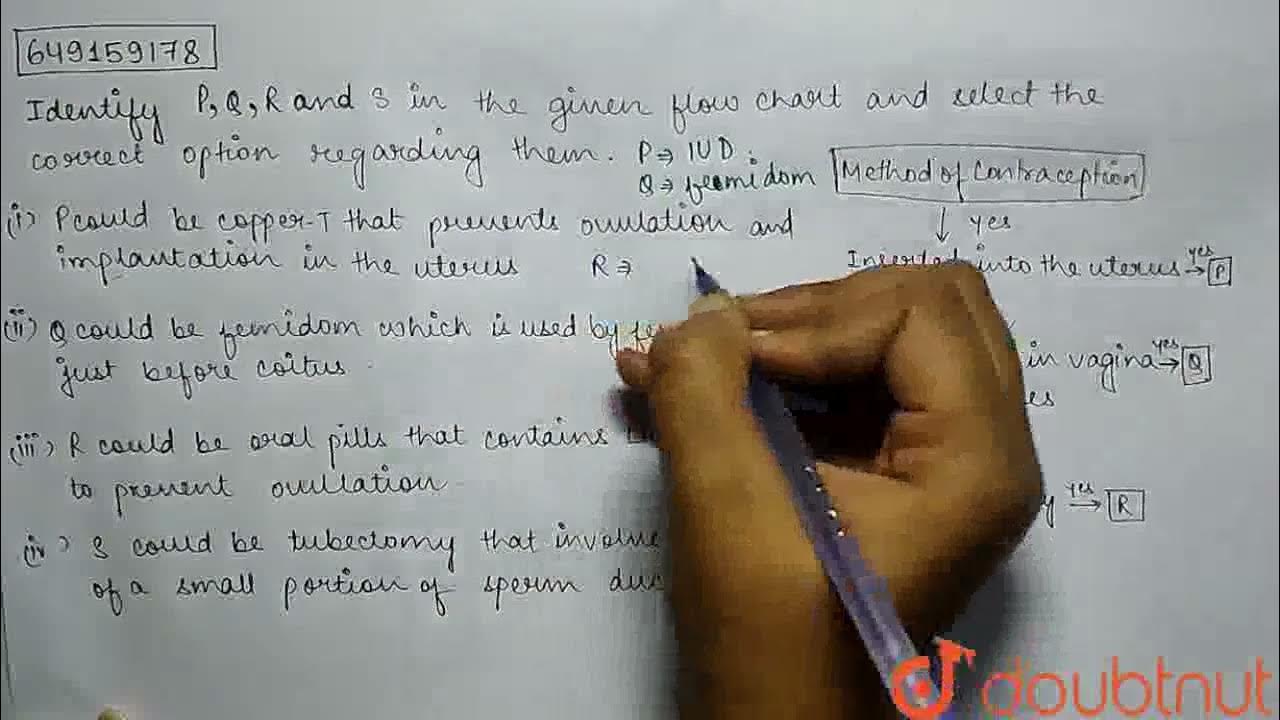 649159178
Identify P, Q, R and S in the given flow chart and select the
correct option regarding them. P⇒ IUD.
Q⇒ femidom
Method of Contraception
↓ yes
(i) P could be copper-T that prevents ovulation and
implantation in the uterus
R ⇒
Inserted into the uterus yes→ P
(ii) Q could be femidom which is used by fe
just before coitus.
in vagina yes→ Q
es
(iii) R could be oral pills that contains
to prevent ovullation
y yes→ R
(iv) S could be tubectomy that involve
of a small portion of sperm duc
doubtnut